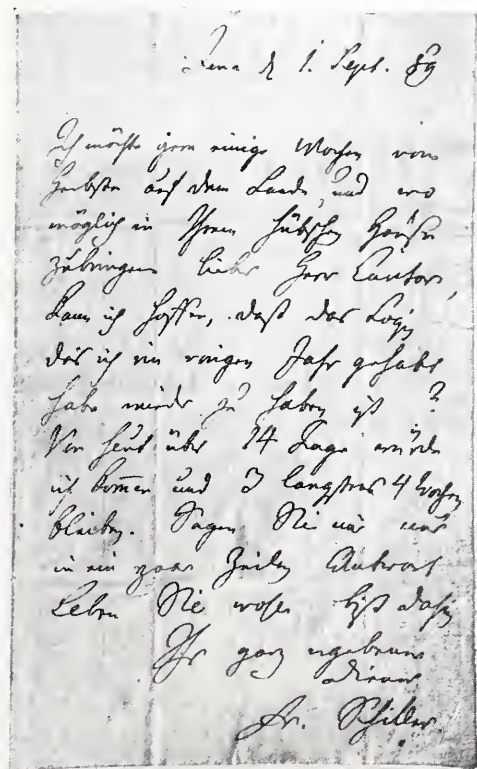 Jena d. 1. Sept. 89
Ich möchte gern einige Wochen vom
Herbste auf dem Lande, und wo
möglich in Ihrem hübschen Hause
zubringen lieber Herr Cantor,
kann ich hoffen, daß das Logis
das ich im vorigen Jahr gehabt
habe wieder zu haben ist?
Von heut über 14 Tage würde
ich kommen und 3 längstens 4 Wochen
bleiben. Sagen Sie mir nur
in ein paar Zeilen Antwort
Leben Sie wohl biß dahin
Ihr ganz ergebener
Diener
Fr. Schiller.